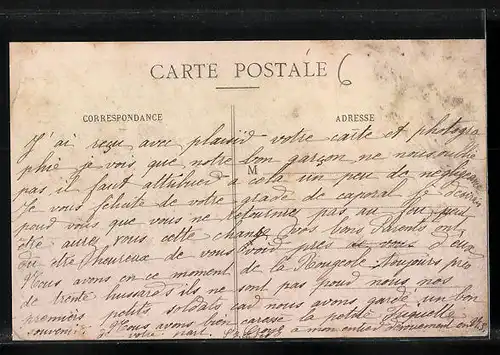 6
CARTE POSTALE
CORRESPONDANCE
ADRESSE
M
J'ai reçu avec plaisir votre carte et photogra
phie je vois que notre bon garçon ne nous oublie
pas il faut attribuer a cela un peu de négligence
Je vous félicite de votre grade de caporal Je désire
pour vous que vous ne retournez pas au feu
être aurez vous cette chance vos bons Parents ont
du être heureux de vous voir près d'eux
Nous avons en ce moment de la toujours pres
de trente hussards ils ne sont pas pour nous nos
premiers petits soldats car nous avons gardé un bon
souvenir. Nous avons bien caressé la petite Huguette
de votre part. a mon entier dévouement